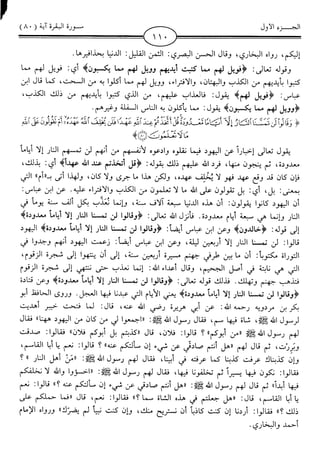 الجـــزء الأول
سورة البقرة آية (٨٠)
١١٠
إليكم، رواه البخاري، وقال الحسن البصري: الثمن القليل: الدنيا بحذافيرها.
وقوله تعالى: ﴿فويل لهم مما كتبت أيديهم وويل لهم مما يكسبون﴾ أي: فويل لهم مما
كتبوا بأيديهم من الكذب والبهتان، والافتراء، وويل لهم مما أكلوا به من السحت، كما قال ابن
عباس: ﴿فويل لهم﴾ يقول: فالعذاب عليهم، من الذي كتبوا بأيديهم من ذلك الكذب،
﴿وويل لهم مما يكسبون﴾ يقول: مما يأكلون به الناس السفلة وغيرهم.
وَقَالُوا لَن تَمَسَّنَا النَّارُ إِلَّا أَيَّامًا مَّعْدُودَةً قُلْ أَتَّخَذْتُمْ عِندَ اللَّهِ عَهْدًا فَلَن يُخْلِفَ اللَّهُ عَهْدَهُ أَمْ تَقُولُونَ عَلَى اللَّهِ
مَا لَا تَعْلَمُونَ
يقول تعالى إخباراً عن اليهود فيما نقلوه وادعوه لأنفسهم من أنهم لن تمسهم النار إلا أياماً
معدودة، ثم ينجون منها، فرد الله عليهم ذلك بقوله: ﴿قل أتخذتم عند الله عهداً﴾ أي: بذلك،
فإن كان قد وقع عهد فهو لا يُخلف عهده، ولكن هذا ما جرى ولا كان، ولهذا أتى بـ«أم» التي
بمعنى: بل، أي: بل تقولون على الله ما لا تعلمون من الكذب والافتراء عليه. عن ابن عباس:
أن اليهود كانوا يقولون: أن هذه الدنيا سبعة آلاف سنة، وإنما نُعذّب بكل ألف سنة يوماً في
النار وإنما هي سبعة أيام معدودة. فأنزل الله تعالى: ﴿وقالوا لن تمسنا النار إلا أياماً معدودة﴾
إلى قوله: ﴿خالدون﴾ وعن ابن عباس أيضاً: ﴿وقالوا لن تمسنا النار إلا أياماً معدودة﴾ اليهود
قالوا: لن تمسنا النار إلا أربعين ليلة، وعن ابن عباس أيضاً: زعمت اليهود أنهم وجدوا في
التوراة مكتوباً: أن ما بين طرفي جهنم مسيرة أربعين سنة، إلى أن ينتهوا إلى شجرة الزقوم،
التي هي نابتة في أصل الجحيم، وقال أعداء الله: إنما نعذب حتى ننتهي إلى شجرة الزقوم
فتذهب جهنم وتهلك. فذلك قوله تعالى: ﴿وقالوا لن تمسنا النار إلا أياماً معدودة﴾ وعن قتادة
﴿وقالوا لن تمسنا النار إلا أياماً معدودة﴾ يعني الأيام التي عبدنا فيها العجل. وروى الحافظ أبو
بكر بن مردويه رحمه الله: عن أبي هريرة رضي الله عنه، قال: لما فتحت خيبر أهديت
لرسول الله ﷺ، شاة فيها سم، فقال رسول الله ﷺ: «اجمعوا لي من كان من اليهود ههنا» فقال
لهم رسول الله ﷺ «من أبوكم» ؟ قالوا: فلان، قال «كذبتم بل أبوكم فلان» فقالوا: صدقت
وبررت، ثم قال لهم «هل أنتم صادقي عن شيء إن سألتكم عنه» ؟ قالوا: نعم يا أبا القاسم،
وإن كذبناك عرفت كذبنا كما عرفته في أبينا، فقال لهم رسول الله ﷺ: «مَنْ أهل النار» ؟
فقالوا: نكون فيها يسيراً ثم تخلفونا فيها، فقال لهم رسول الله ﷺ: «اخسؤوا والله لا نخلفكم
فيها أبداً» ثم قال لهم رسول الله ﷺ: «هل أنتم صادقي عن شيء إن سألتكم عنه» ؟ قالوا: نعم
يا أبا القاسم، قال: «هل جعلتم في هذه الشاة سما» ؟ فقالوا: نعم، قال «فما حملكم على
ذلك» ؟ فقالوا: أردنا إن كنت كاذباً أن نستريح منك، وإن كنت نبياً لم يضرّك» ورواه الإمام
أحمد والبخاري.